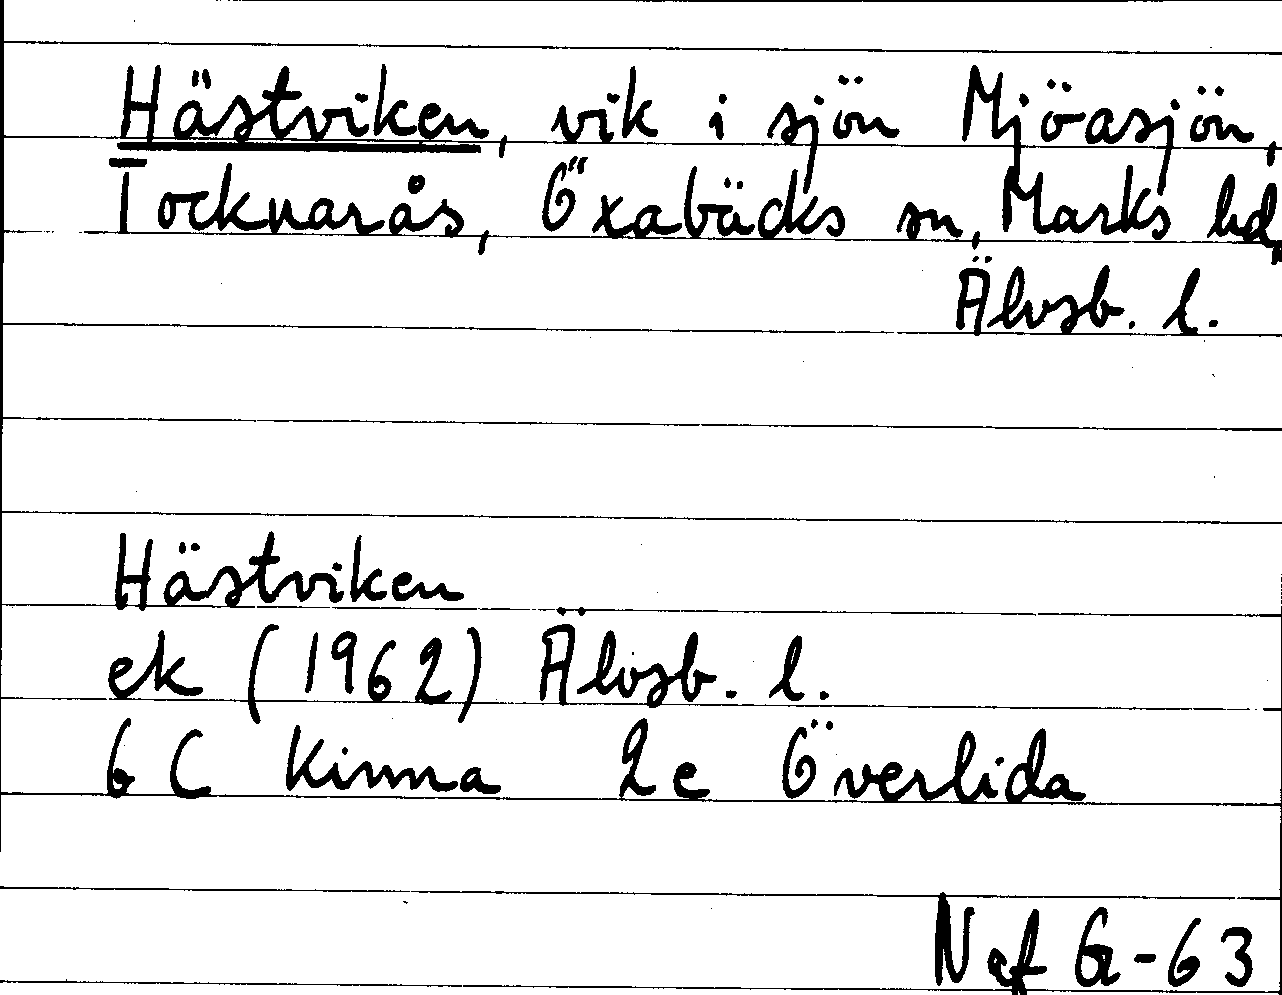 Hästviken, vik i sjön Mjöasjön,
Tocknarås, Öxabäcks sn, Marks hd,
Älvsb. l.
Hästviken
ek (1962) Älvsb. l.
6 C Kinna 2e Överlida
-63